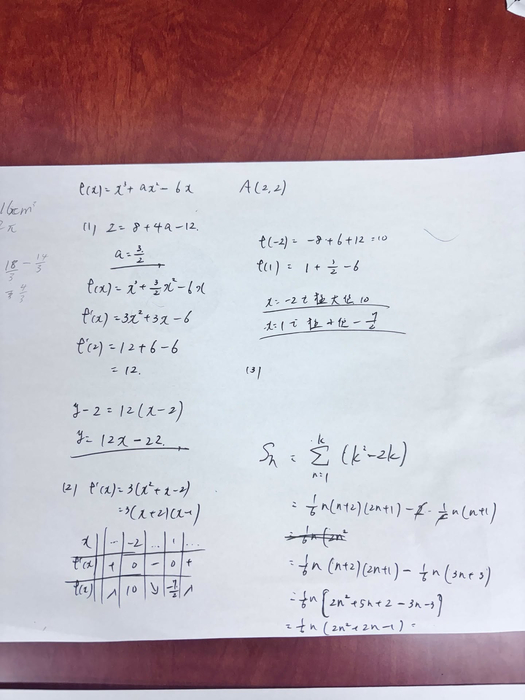 f(x) = x³ + ax² - 6x
A(2,2)
(1) 2 = 8 + 4a - 12.
a = 3/2
f(x) = x³ + 3/2 x² - 6x
f'(x) = 3x² + 3x - 6
f'(2) = 12 + 6 - 6
= 12.
y - 2 = 12(x - 2)
y = 12x - 22.
(2) f'(x) = 3(x² + x - 2)
= 3(x+2)(x-1)
x | … | -2 | … | 1 | …
f'(x) | + | 0 | - | 0 | +
f(x) | ↗ | 10 | ↘ | -7/2 | ↗
f(-2) = -8 + 6 + 12 = 10
f(1) = 1 + 3/2 - 6
x = -2で極大値 10
x = 1で極小値 -7/2
(3)
Sn = Σ k n=1 (k² - 2k)
= 1/6 n(n+2)(2n+1) - 2 · 1/2 n(n+1)
= 1/6 n (2n²
= 1/6 n (n+2)(2n+1) - 1/6 n (3n+3)
= 1/6 n [2n² + 5n + 2 - 3n - 3]
= 1/6 n (2n² + 2n - 1) =
16cm²
18/3 - 14/3
4/3